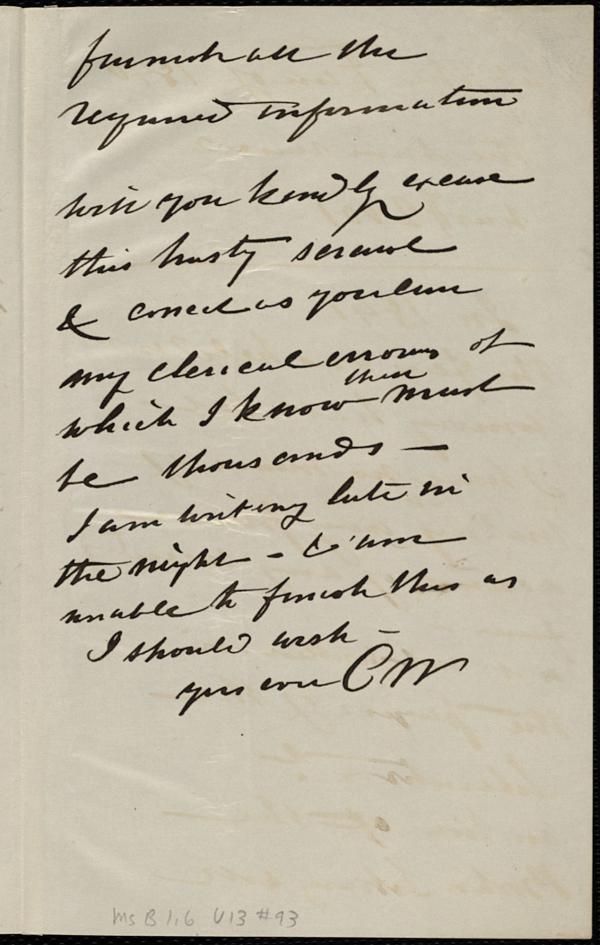 furnish all the
required information
will you kindly excuse
this hasty scrawl
& correct as you can
my clerical errors of
which I know there must
be thousands —
I am writing late in
the night - & am
unable to finish this as
I should wish -
yrs ever CW
Ms B 1.6 V13 #93